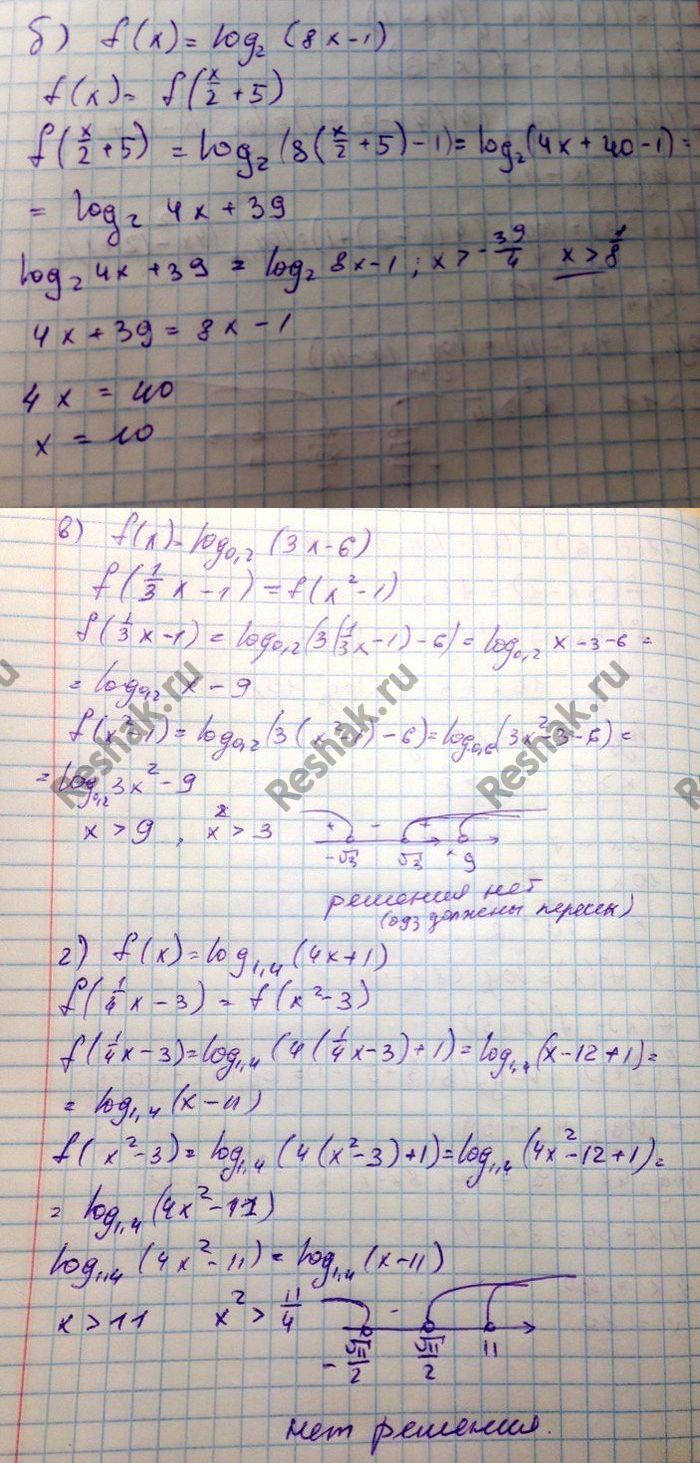 б) f(x) = log₂ (8x-1)
f(x) = f(x/2 + 5)
f(x/2 + 5) = log₂ (8(x/2 + 5) - 1) = log₂ (4x + 40 - 1) =
= log₂ 4x + 39
log₂ 4x + 39 = log₂ 8x - 1 ; x > -39/4 x > 1/8
4x + 39 = 8x - 1
4x = 40
x = 10
в) f(x) = log₀,₂ (3x-6)
f(1/3 x - 1) = f(x² - 1)
f(1/3 x - 1) = log₀,₂ (3(1/3 x - 1) - 6) = log₀,₂ x - 3 - 6 =
= log₀,₂ x - 9
f(x² - 1) = log₀,₂ (3(x² - 1) - 6) = log₀,₆ (3x² - 3 - 6) =
= log₀,₂ 3x² - 9
x > 9 , x² > 3 + - + -√3 √3 9
решения нет
(одз должены пересы)
г) f(x) = log₁,₄ (4x+1)
f(1/4 x - 3) = f(x² - 3)
f(1/4 x - 3) = log₁,₄ (4(1/4 x - 3) + 1) = log₁,₄ (x - 12 + 1) =
= log₁,₄ (x - 11)
f(x² - 3) = log₁,₄ (4(x² - 3) + 1) = log₁,₄ (4x² - 12 + 1) =
= log₁,₄ (4x² - 11)
log₁,₄ (4x² - 11) = log₁,₄ (x - 11)
x > 11 x² > 11/4 - -√11/2 √11/2 11
нет решения.
Reshak.ru Reshak.ru Reshak.ru